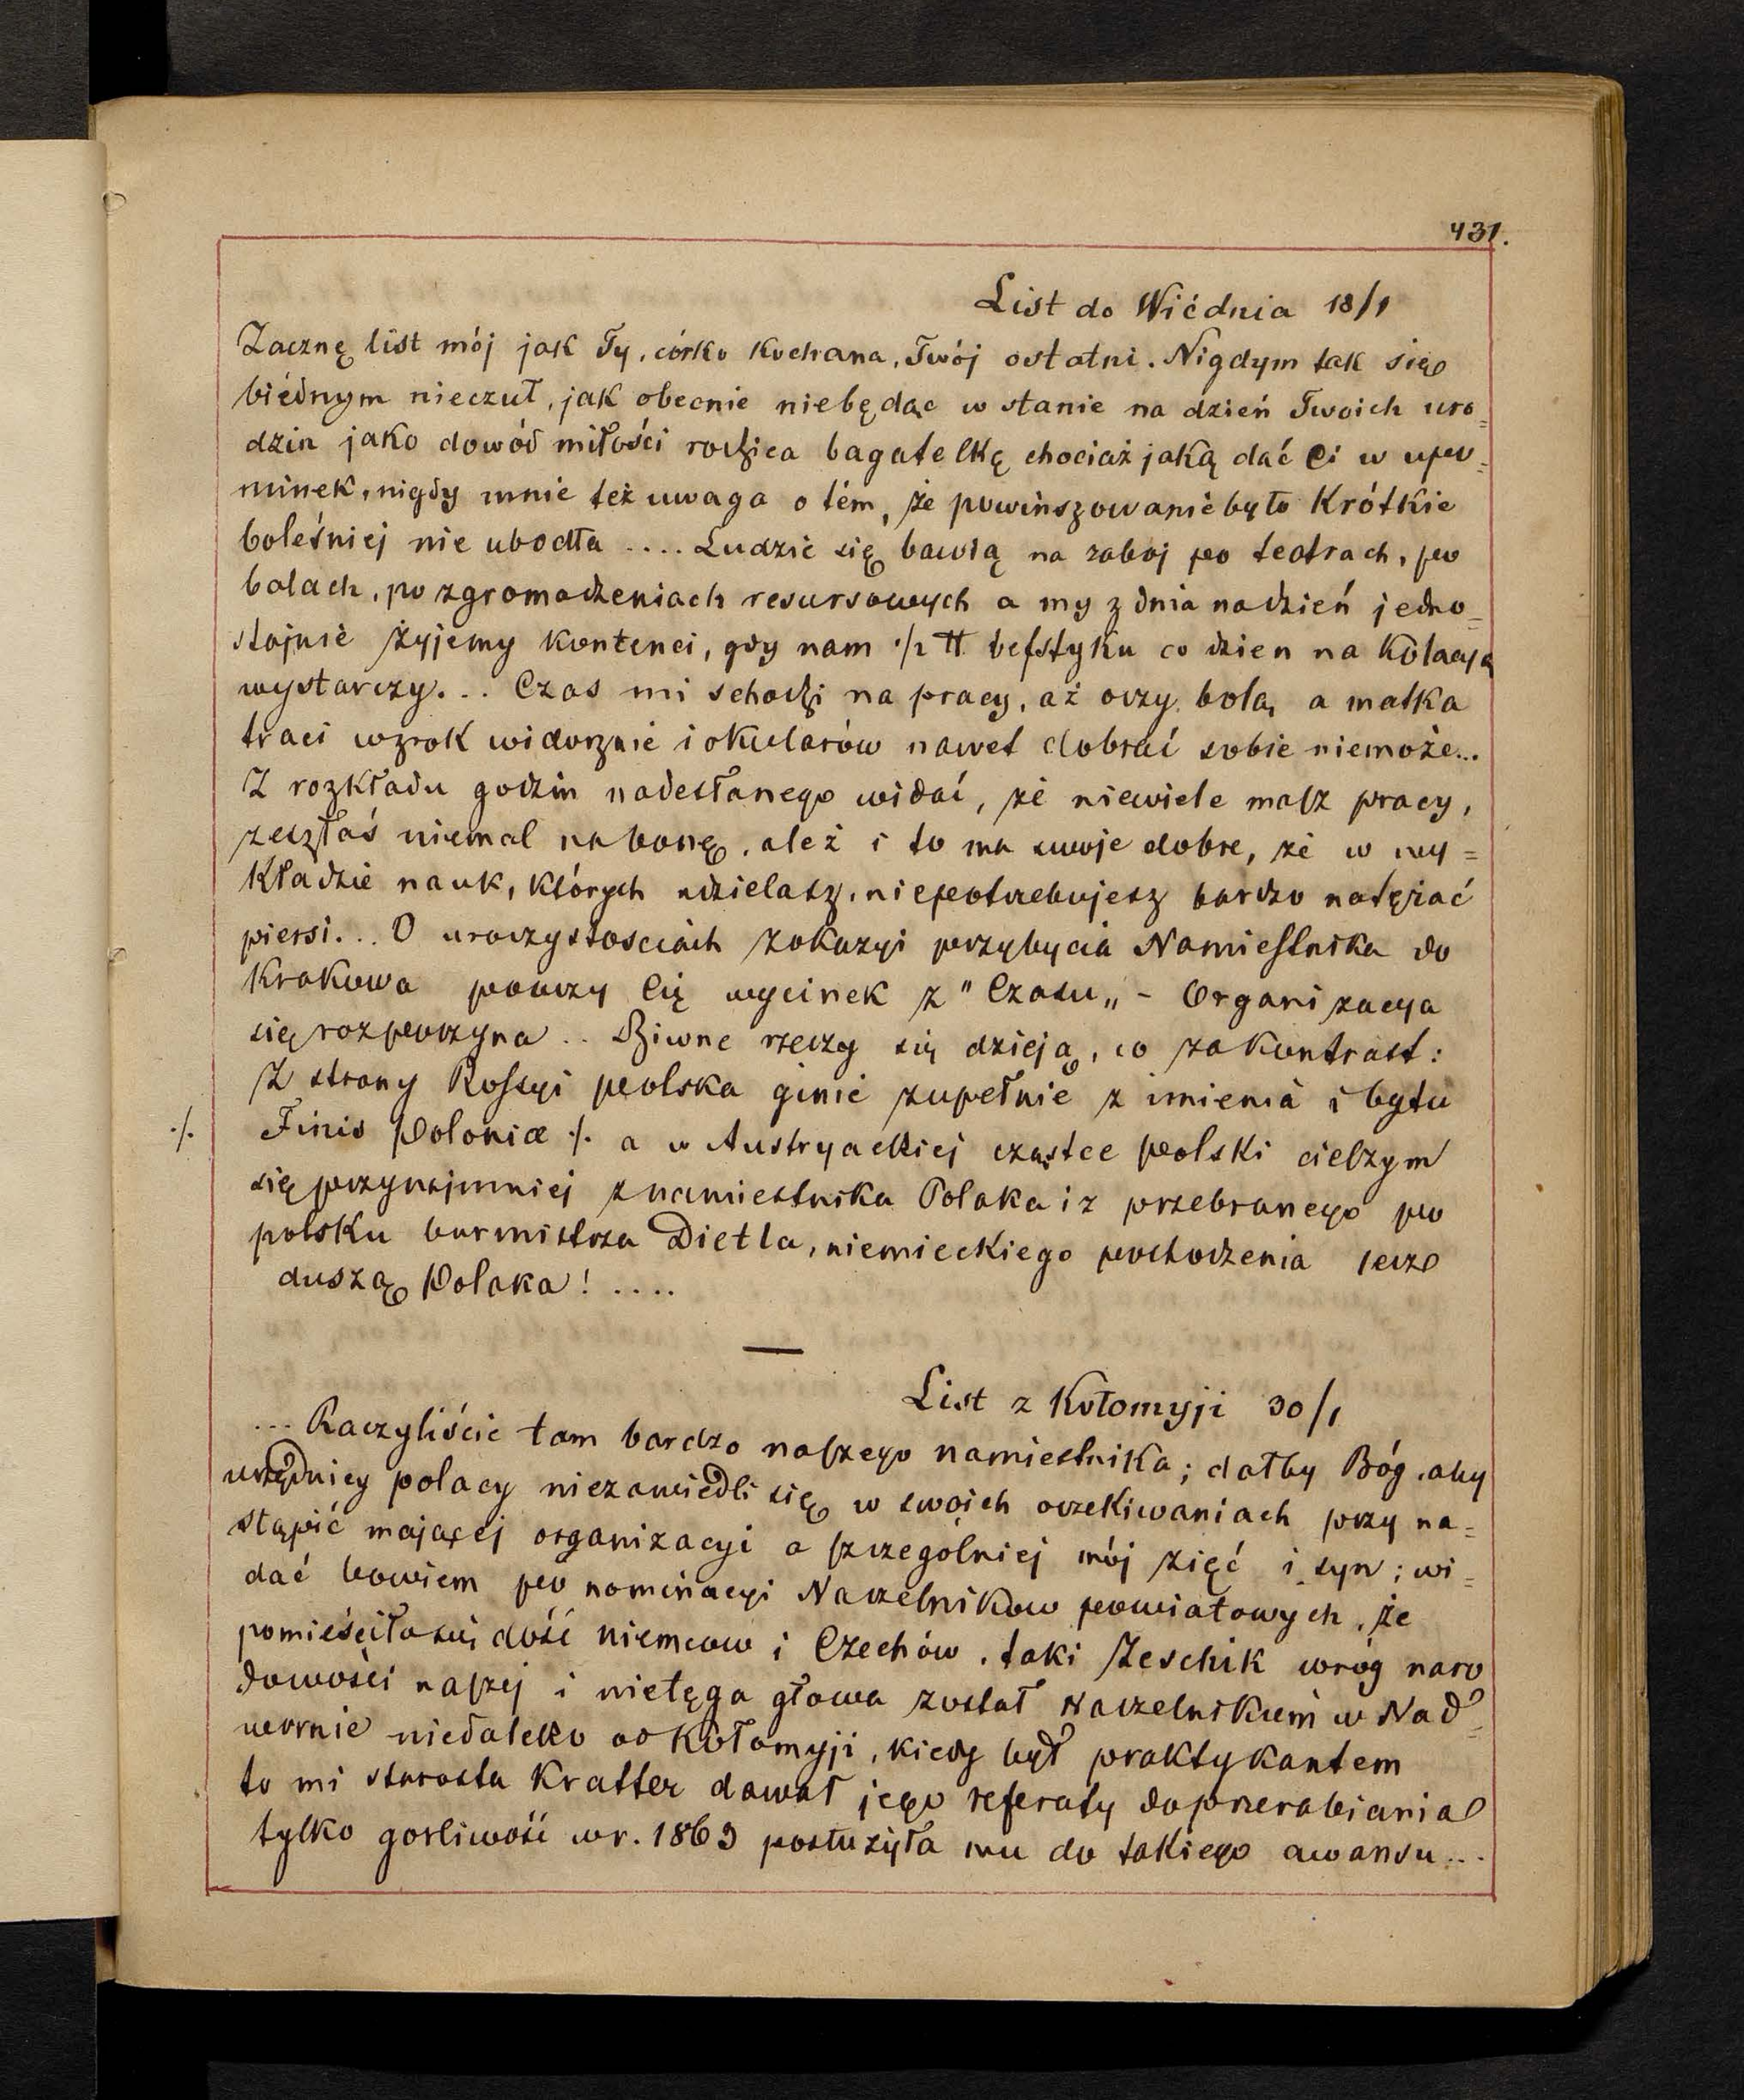 431.
List do Wiédnia 18/1
Zacznę list mój jak Ty, córko kochana, Twój ostatni. Nigdym tak się
biédnym nieczuł, jak obecnie niebędąc w stanie na dzień Twoich uro=
dzin jako dowód miłości rodzica bagatelkę chociaż jaką dać Ci w upo=
minek, nigdy mnie też uwaga o tém, że powinszowanie było krótkie
boleśniej nie ubodła .... Ludzie się bawią na zaboj po teatrach, po
balach, po zgromadzeniach resursowych a my z dnia na dzień jedno=
stajnie żyjemy kontenci, gdy nam 1/2 ℔ befstyku co dzien na kolacyą
wystarczy... Czas mi schodzi na pracy, aż oczy bolą, a matka
traci wzrok widocznie i okularów nawet dobrać sobie niemoże...
Z rozkładu godzin nadesłanego widać, że niewiele masz pracy,
zeszłaś niemal na bonę, ależ i to ma swoje dobre, że w wy=
kładzie nauk, których udzielasz, niepotrzebujesz bardzo natężać
piersi... O uroczystosciach z okazyi przybycia Namiestnika do
Krakowa pouczy Cię wycinek z "Czasu„ - Organizacya
się rozpoczyna .. Dziwne rzeczy się dzieją, co za kontrast:
Z strony Rossyi polska ginie zupełnie z imienia i bytu
·/. Finis Poloniæ ·/. a w Austryackiej cząstce polski cieszym
się przynajmniej z namiestnika Polaka i z przebranego po
polsku burmistrza Dietla, niemieckiego pochodzenia lecz
duszą Polaka! ....
—
List z Kołomyji 30/1
... Raczyliście tam bardzo naszego namiestnika; dałby Bóg, aby
urzędnicy polacy niezawiedli się w swoich oczekiwaniach przy na=
stąpić mającej organizacyi a szczególniej mój zięć i syn; wi=
dać bowiem po nominacyi Naczelnikow powiatowych, że
pomieściło się dość niemcow i Czechów, taki Zeschik wróg naro
dowości naszej i nietęga głowa został naczelnikiem w Nad=
wornie niedaleko od Kołomyji, kiedy był praktykantem
to mi starosta Kratter dawał jego referaty do przerabiania
tylko gorliwość w r. 1863 posłużyła mu do takiego awansu...